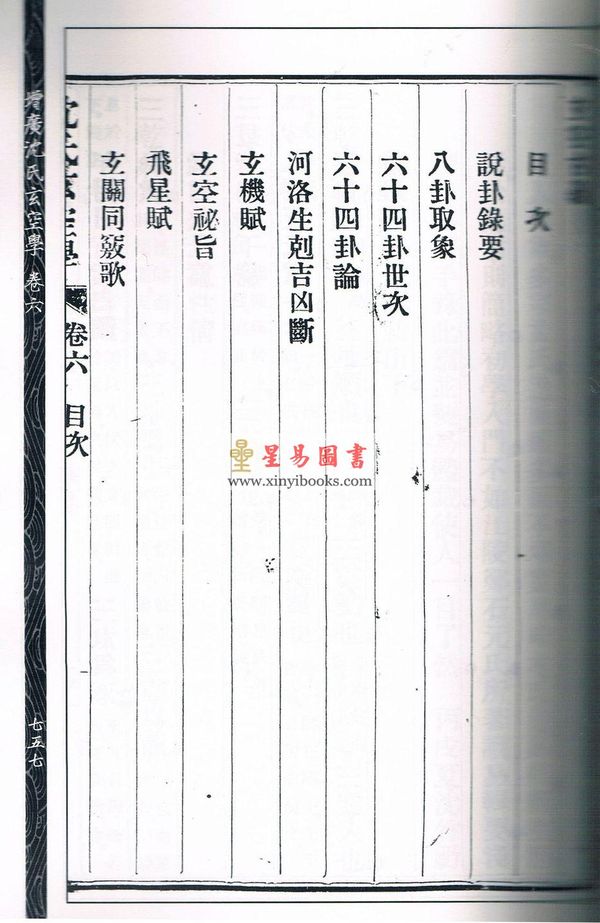 目次
說卦錄要
八卦取象
六十四卦世次
六十四卦論
河洛生剋吉凶斷
玄機賦
玄空祕旨
飛星賦
玄關同竅歌
沈氏玄空學
卷六 目次
增廣沈氏玄空學 卷六
七五七
星易圖書
www.xinyibooks.com